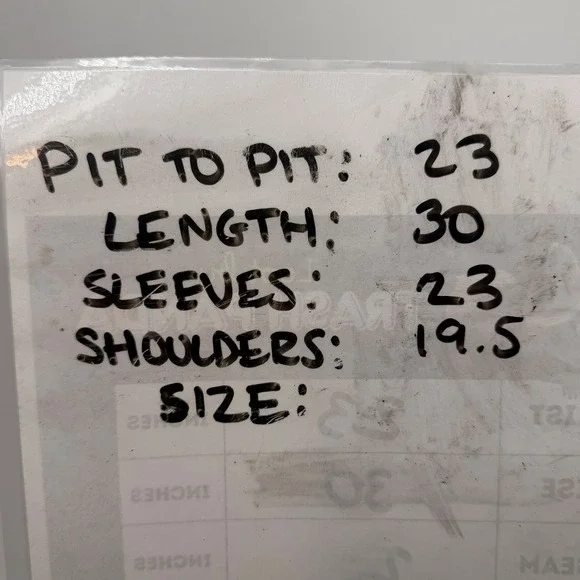 PIT TO PIT: 23
LENGTH: 30
SLEEVES: 23
SHOULDERS: 19.5
SIZE:
INCHES
INCHES
INCHES